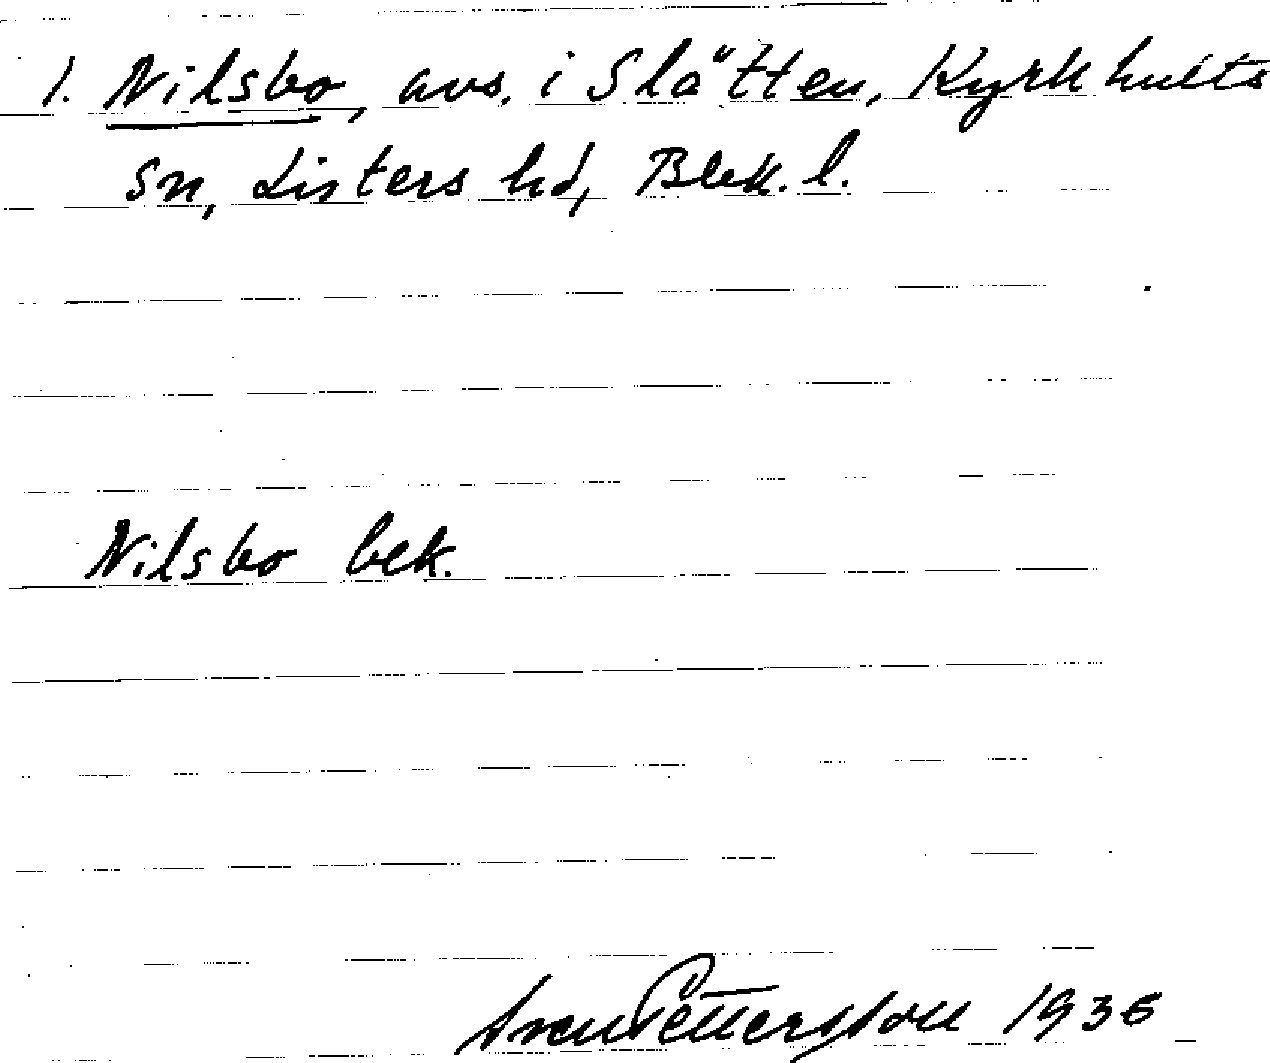 1. Nilsbo, avs. i Slätten, Kyrkhults
sn, Listers hd, Blek. l.
Nilsbo bek.
Sven Pettersson 1936